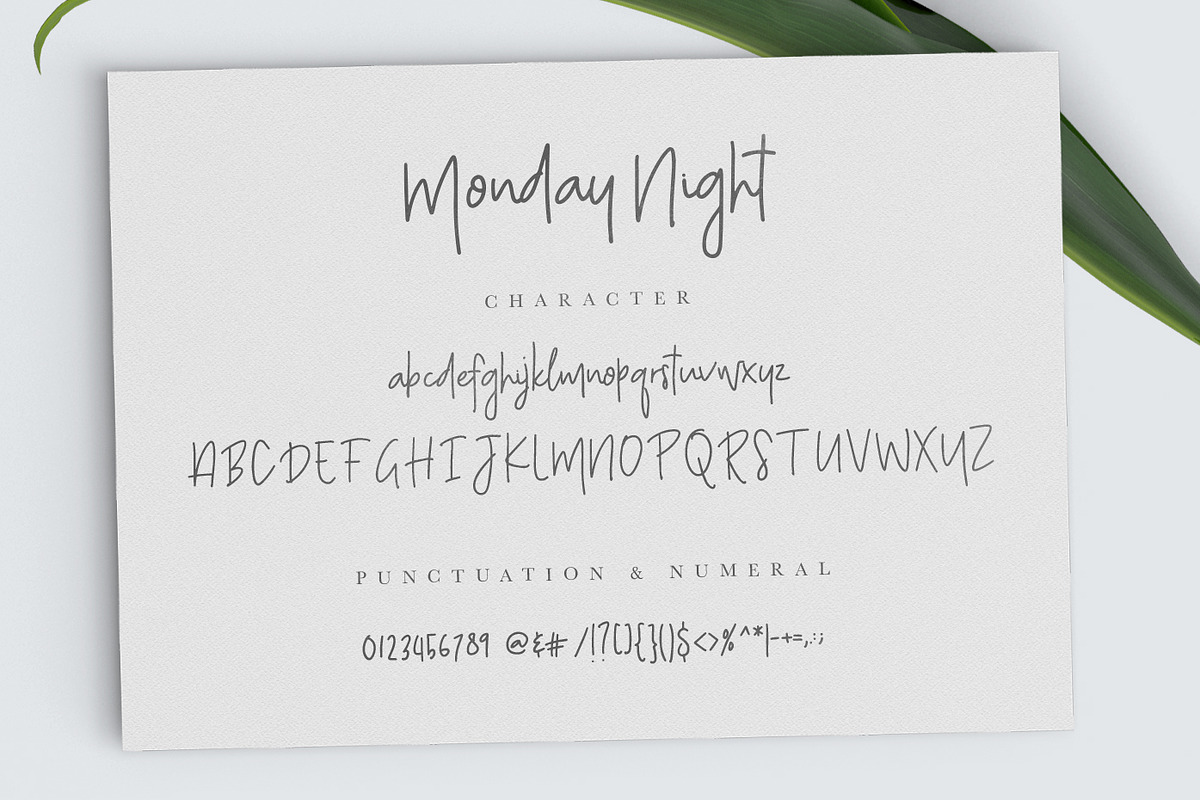 Monday Night
CHARACTER
abcdefghijklmnopqrstuvwxyz
ABCDEFGHIJKLMNOPQRSTUVWXYZ
PUNCTUATION & NUMERAL
0123456789 @&# /!?[]{}()$<>%^*|-+=,.:;